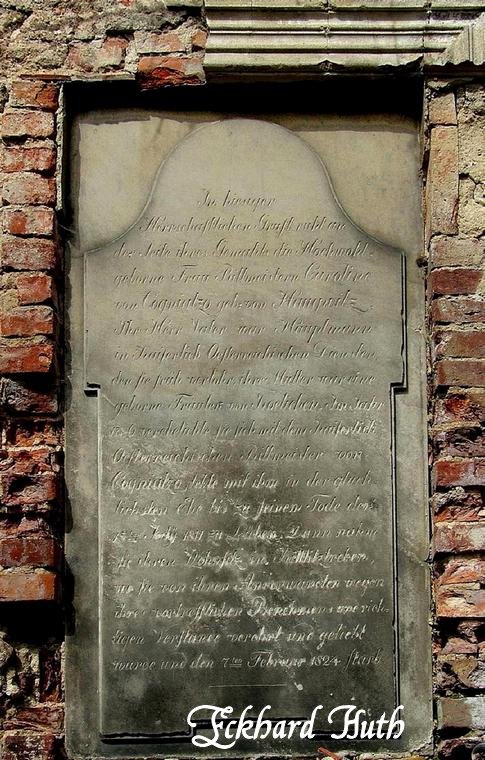 In hiesiger
Herrschaftlichen Gruft ruht an
der Seite ihres Gemahls die Hochwohl-
geborne Frau Rittmeistern Carolina
von geb: von Haugwitz
Ihr Herr Vater war Hauptmann
in Kaiserlich Oesterreichischen Diensten,
den sie früh verlohr, ihre Mutter war eine
geborne Fräulein von Im Jahr
verehelichte sie sich mit dem Kaiserlich
Oesterreichischen Rittmeister von
lebte mit ihm in der glück
lichsten Ehe bis zu seinen Tode den
July 1811 zu Dann nahm
sie ihren Wohnsitz in
wo sie von ihnen Anverwandten wegen
ihres vortrefflichen Benehmens und rich-
tigen Verstande verehrt und geliebt
wurde und den 7ten Februar 1824 starb
Eckhard Huth